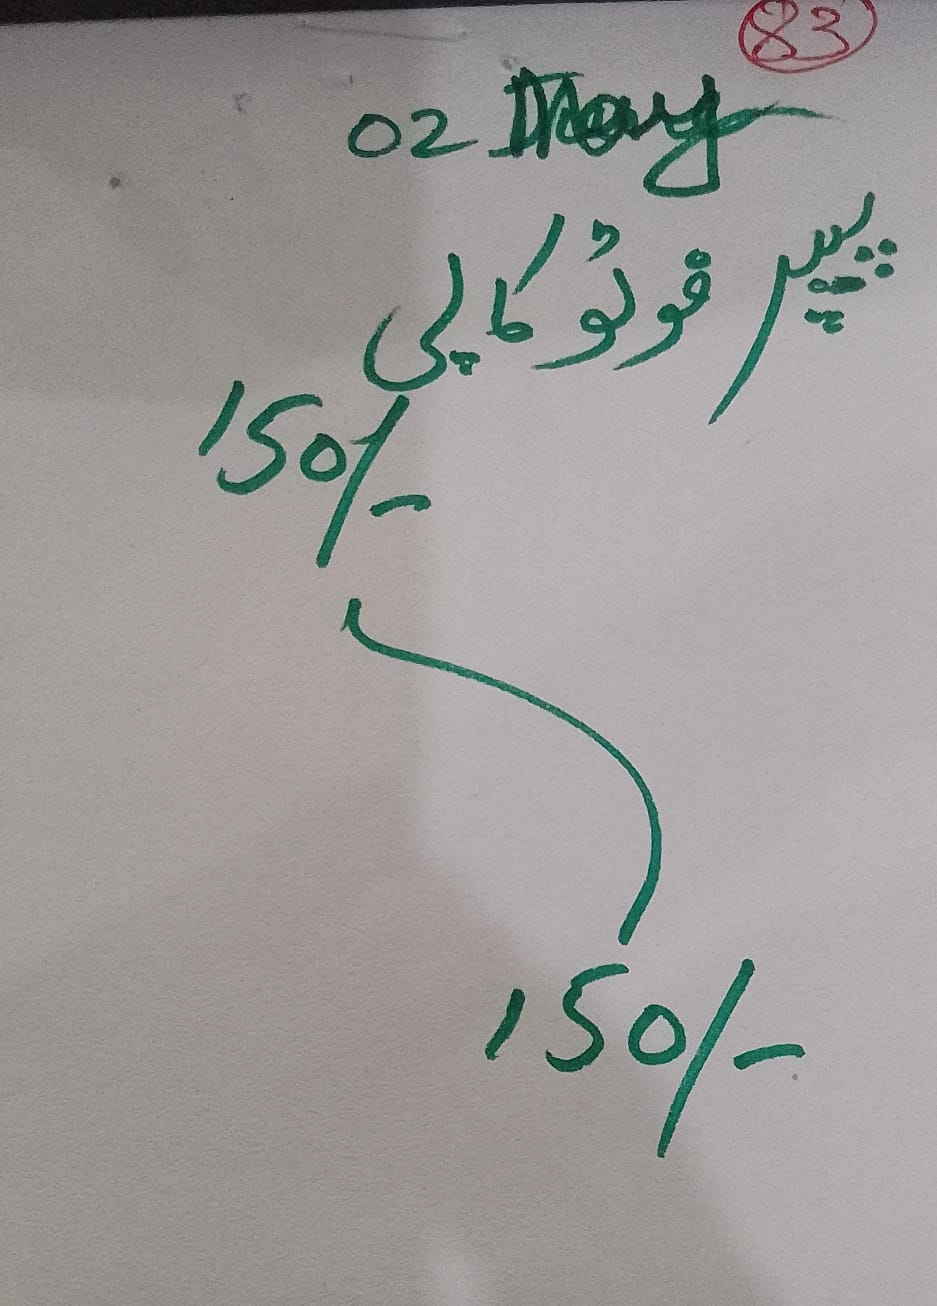 83
02 May
پیپر فوٹو کاپی
150/-
150/-